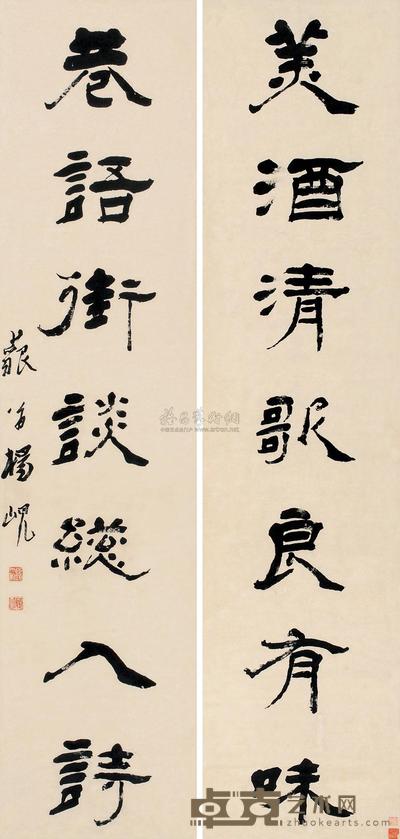 美酒清歌良有味
巷語街談總入詩
藐翁楊峴
卓克艺术网
zhuokearts.com